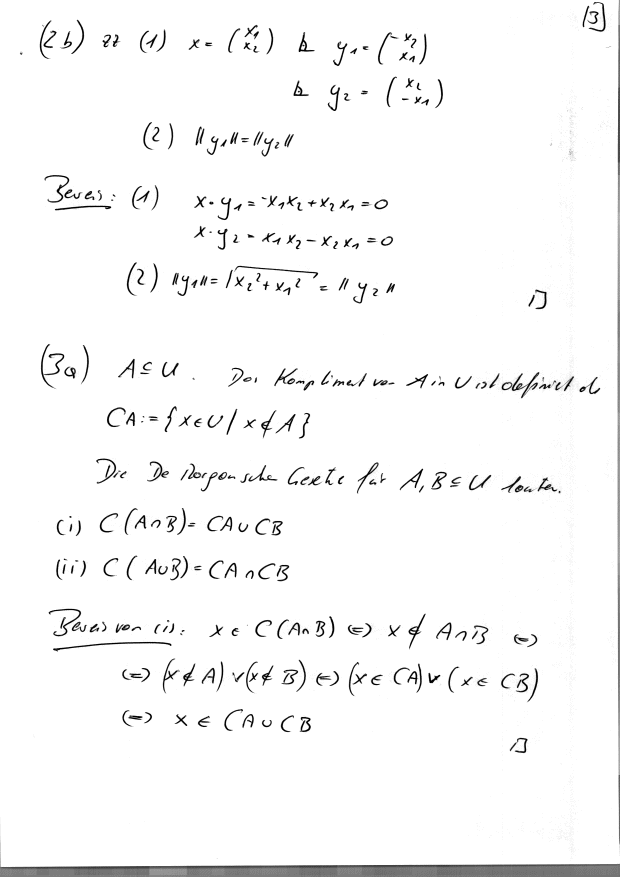 13
(2b) zz (1) x = (x₁ x₂) ⊥ y₁ = (-x₂ x₁)
⊥ y₂ = (x₂ -x₁)
(2) ||y₁|| = ||y₂||
Beweis: (1) x · y₁ = -x₁x₂ + x₂x₁ = 0
x · y₂ = x₁x₂ - x₂x₁ = 0
(2) ||y₁|| = √(x₂² + x₁²) = ||y₂||
□
(3a) A ⊆ U. Das Kompliment von A in U ist definiert als
CA := {x ∈ U | x ∉ A}
Die De Morganschen Gesetze für A, B ⊆ U lauten.
(i) C(A∩B) = CA ∪ CB
(ii) C(A∪B) = CA ∩ CB
Beweis von (i): x ∈ C(A∩B) ⇔ x ∉ A∩B ⇔
⇔ (x ∉ A) ∨ (x ∉ B) ⇔ (x ∈ CA) ∨ (x ∈ CB)
⇔ x ∈ CA ∪ CB
□